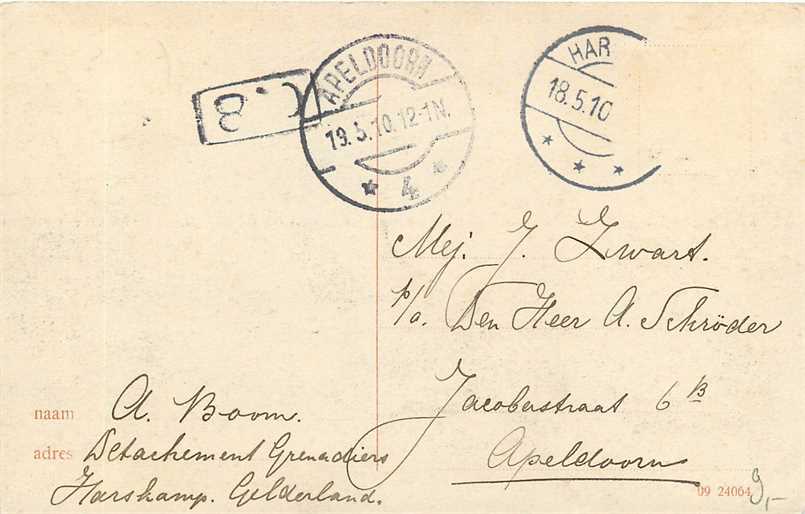 C.8
APELDOORN
19.5.10.12-1N.
4
HAR
18.5.10
Mej. J. Zwart.
p/a. Den Heer A. Schröder
Jacobastraat 6 B
Apeldoorn
naam A. Boom.
adres Detachement Grenadiers
Harskamp. Gelderland.
09 24064
9,-